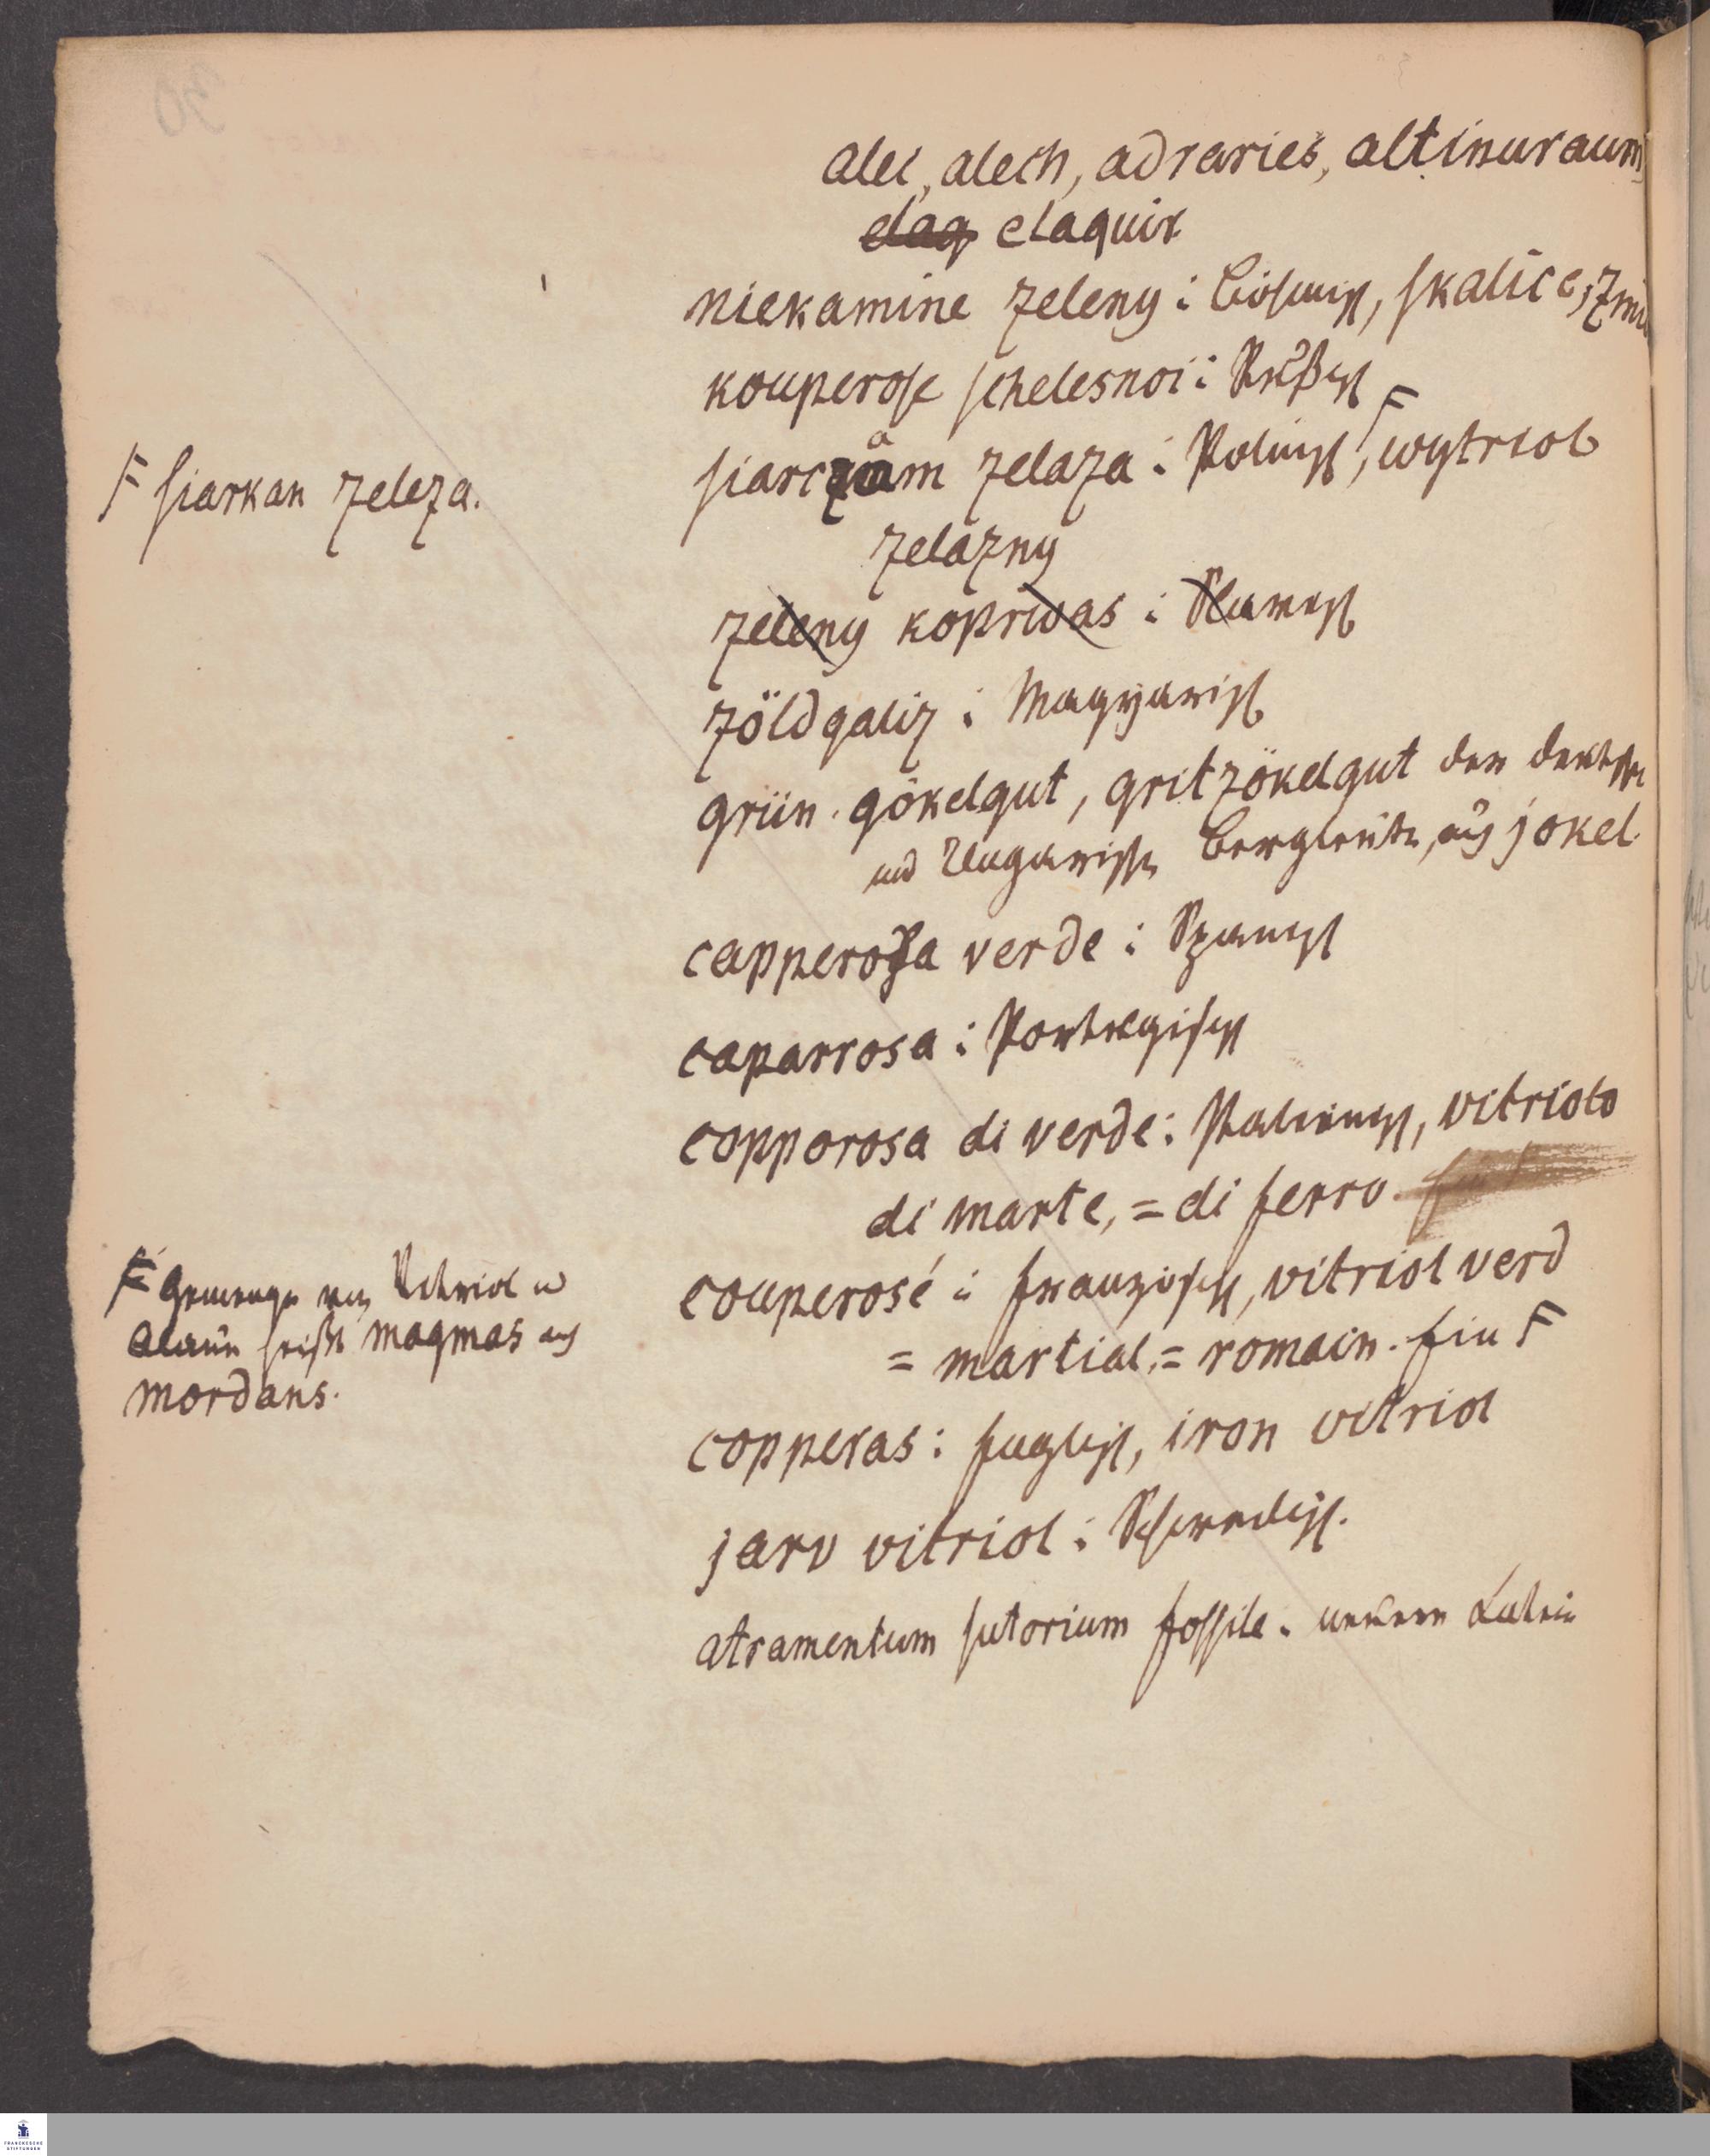 alec, alech, adraries, altinuraum
elaq elaquir
niekamine zeleny : Bömisch, skalice,
kouperose schelesnoi : Rußisch
siarczäm zelaza : Polnisch, F wytriol
F siarkan zeleza.
zelazny
zeleny kopriwas : Slawisch
zöldgaliz : Magyarisch
grün. gökelgut, gritzökelgut der deutschen
und Ungarischen Bergleute, aus jokel.
capperosa verde : Spanisch
caparrosa : Portugisisch
copporosa di verde : Italienisch, vitriolo
di marte, = di ferro.
couperosé : französisch, vitriol verd
= martial, = romain. Ein F
F Gemenge von Vitriol u
Alaun heißt magmas auch
mordans.
copperas : Englisch, iron vitriol
jarv vitriol : Schwedisch.
atramentum sutorium fossile. neuern Latein